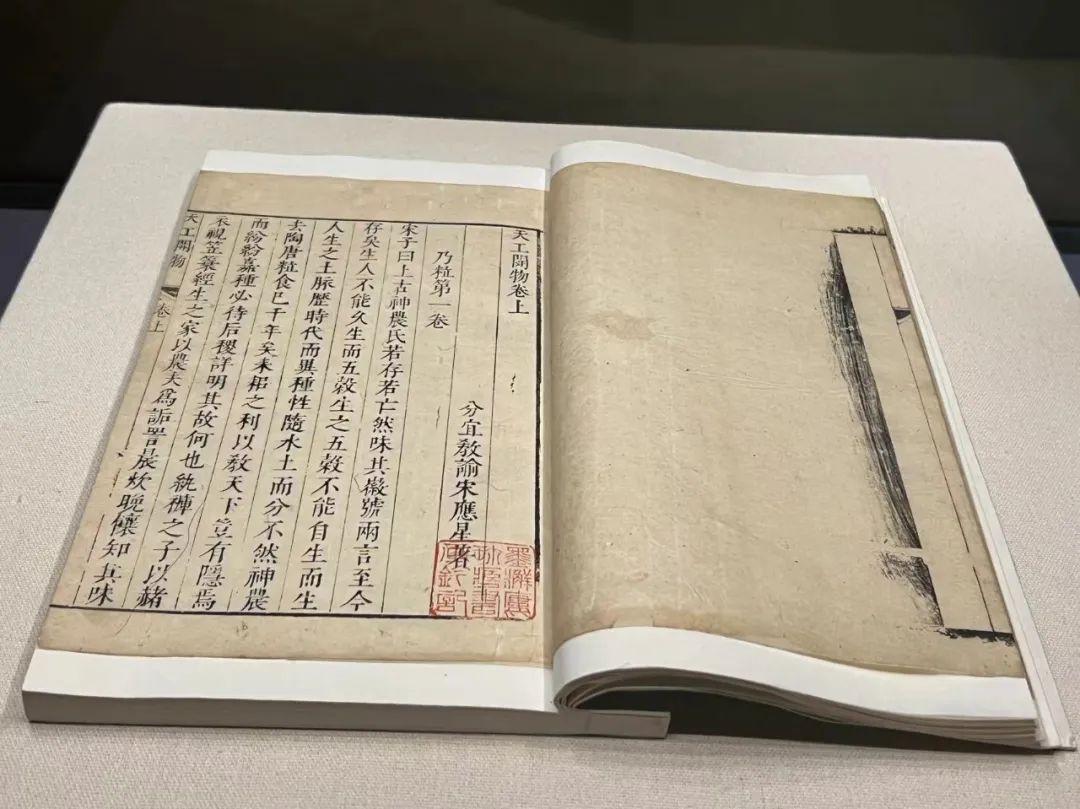 天工開物卷上
分宜教諭宋應星著
乃粒第一卷
宋子曰上古神農氏若存若亡然味其徽號兩言至今
存矣生人不能久生而五穀生之五穀不能自生而生
人生之土脈歷時代而異種性隨水土而分不然神農
去陶唐粒食已千年矣耒耜之利以教天下豈有隱焉
而紛紛嘉種必待后稷詳明其故何也紈褲之子以赭
衣視笠簑經生之家以農夫爲詬詈晨炊晚饟知其味
天工開物 卷上